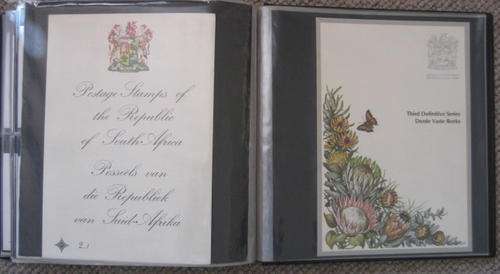 Postage Stamps of
the Republic
of South Africa
Posseëls van
die Republiek
van Suid-Afrika
2.1
Third Definitive Series
Derde Vaste Reeks